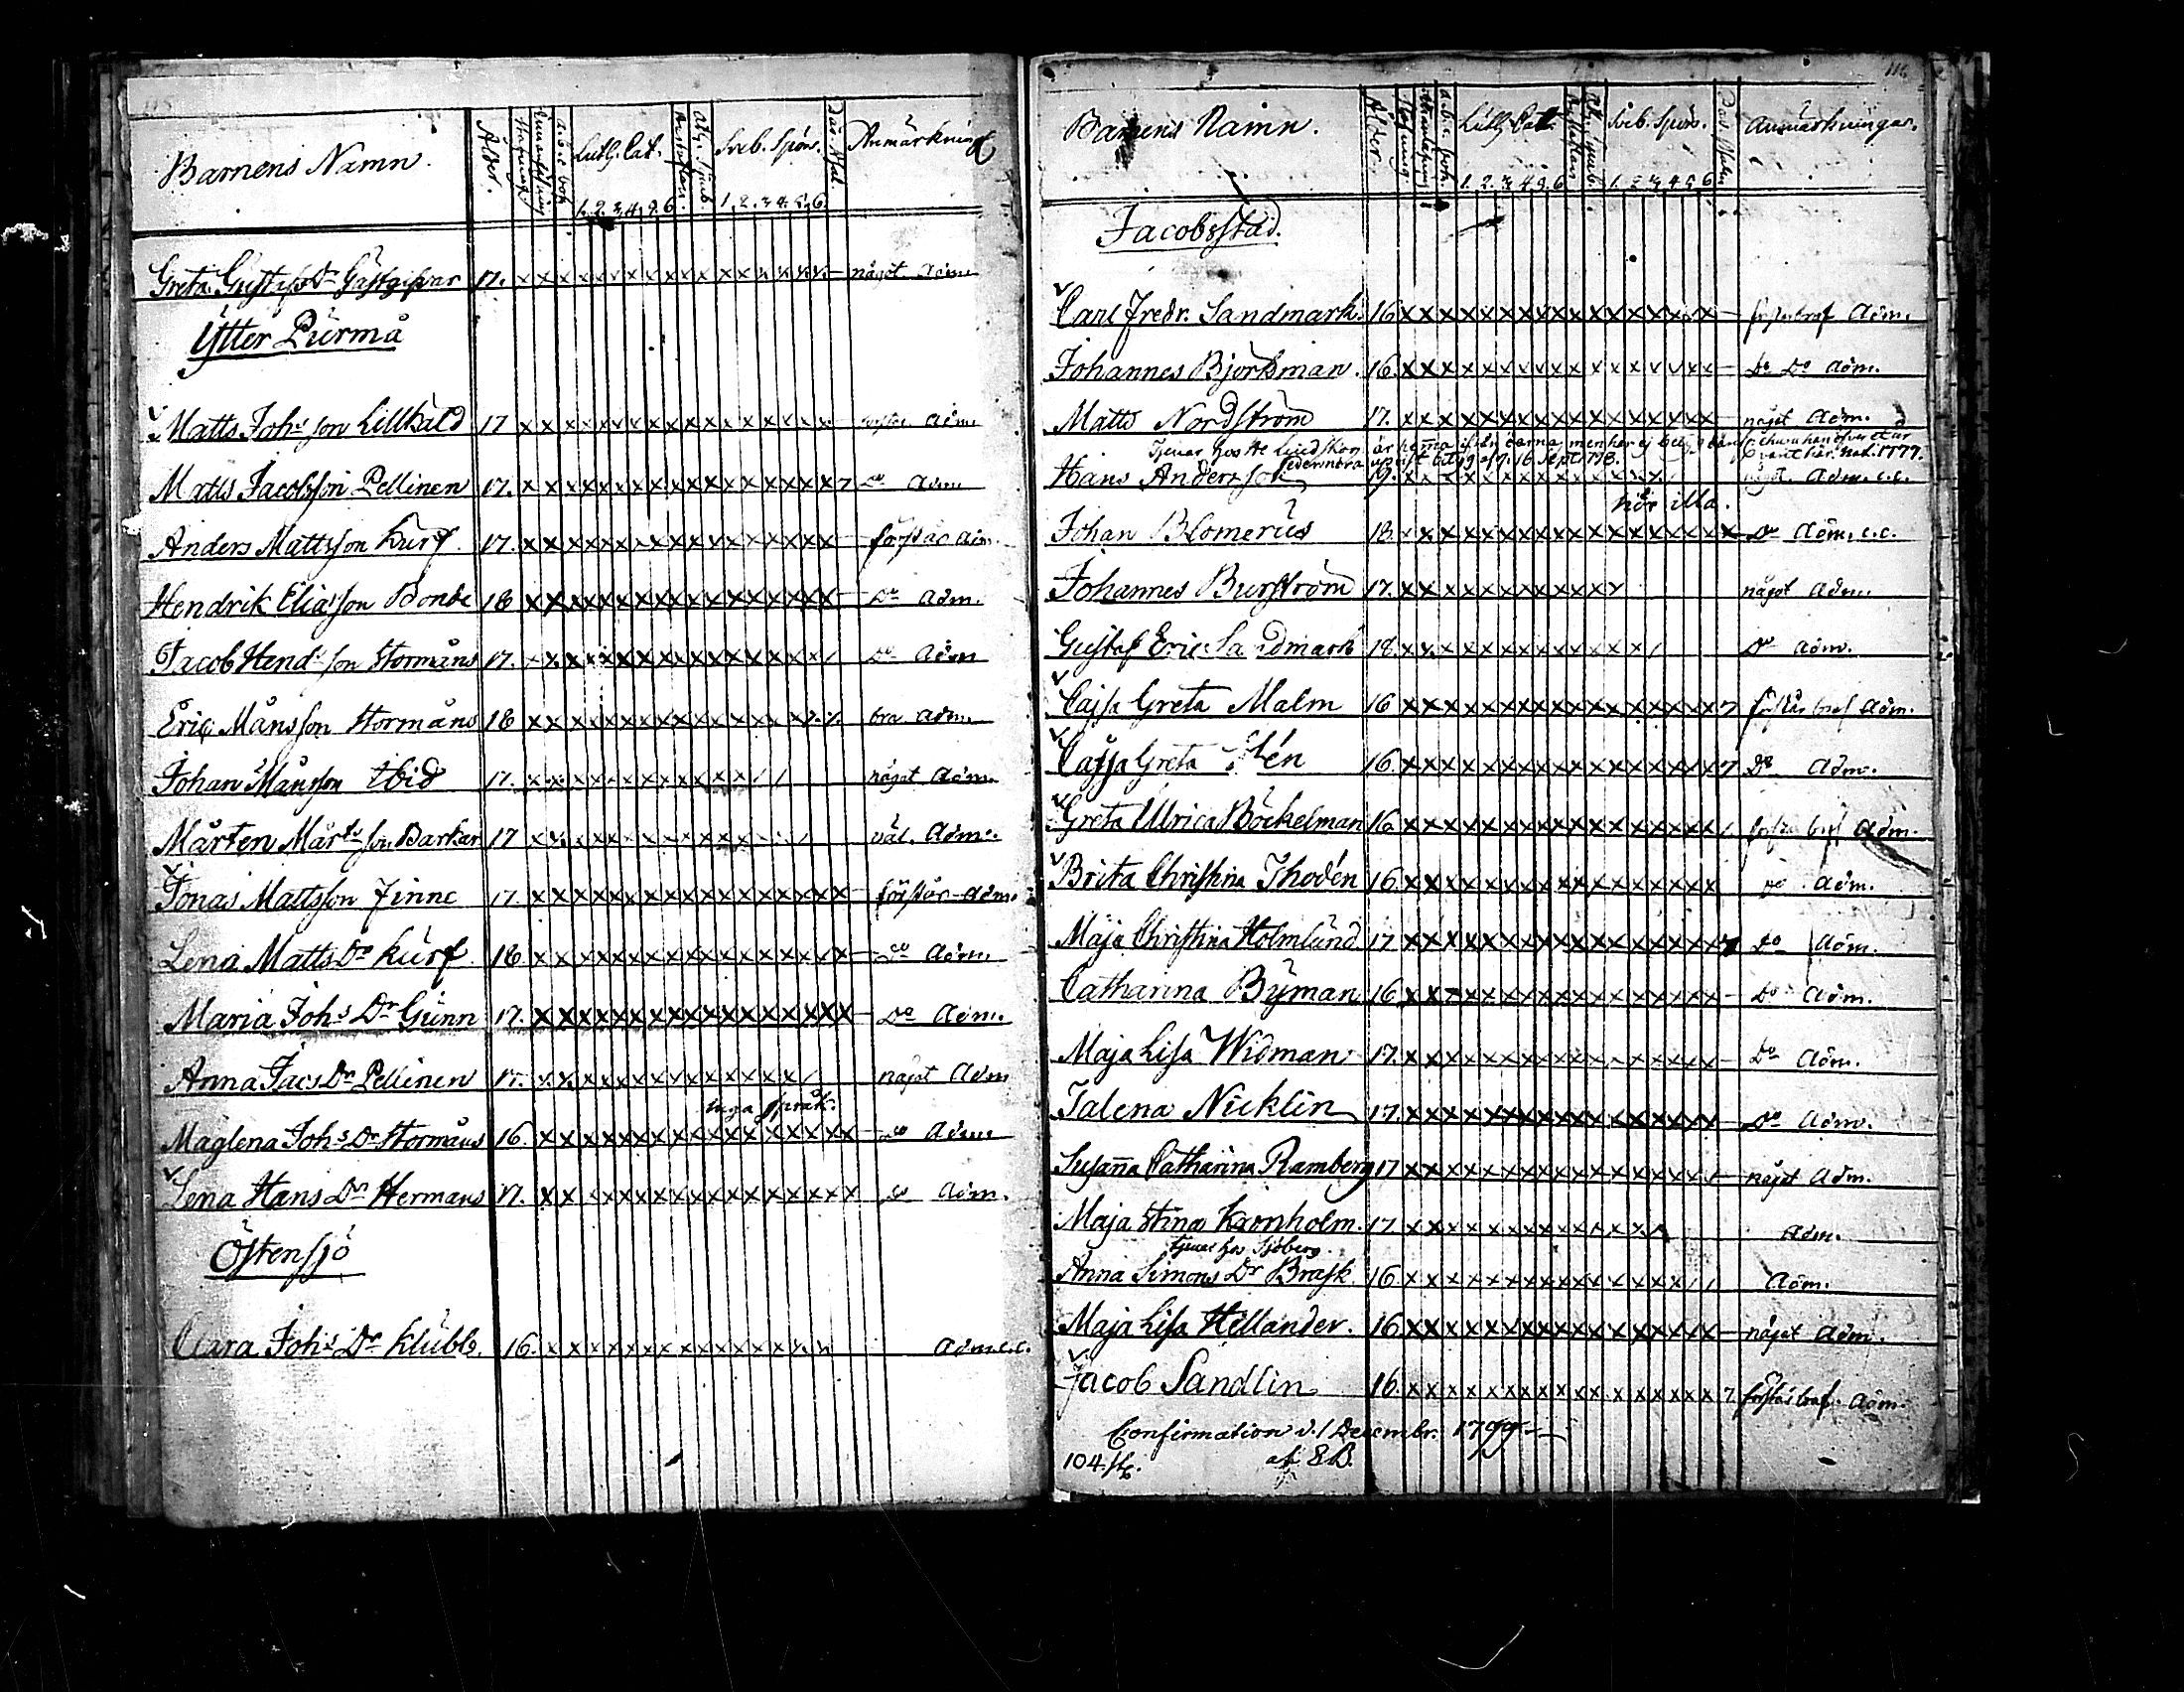 115
Barnens Namn. Alder. Stafning innanläsning a.b.c. bok Luth. Cat. Hustaflan Ath. Symb. Sveb. Spörs. Dav. Psal. Anmärkning
1. 2. 3. 4. 5. 6. 1. 2. 3. 4. 5. 6.
Greta Gustafs Dr Gästgifvar 17. x x x x x x x x x x x x x x x x x — något adm.
Ytter Purmå
Matts Johs son Lillkåld 17 x x x x x x x x x x x x x x x x x — adm.
Matts Jacobsson Pellinen 17. x x x x x x x x x x x x x x x x x 7 Do adm.
Anders Mattsson Kurf 17. x x x x x x x x x x x x x x x x x — förstår adm.
Hendrik Eliasson Bonde 18 x x x x x x x x x x x x x x x x x — Do adm.
Jacob Hends son Stormåns 17. x x x x x x x x x x x x x x x x / Do adm
Eric Månsson Stormåns 18 x x x x x x x x x x x x x x x bra adm.
Johan Månsson Ibid 17. x x x x x x x x x x x x x / / något adm.
Mårten Mårts son Barkar 17 x x x x x x x x x x x x x / väl. adm.
Jonas Mattsson Finne 17. x x x x x x x x x x x x x x x x x — förstår adm.
Lena Matts Dr Kurf 18 x x x x x x x x x x x x x x x x x — Do adm.
Maria Johs Dr Gunn 17. x x x x x x x x x x x x x x x x x — Do adm.
Anna Jacs Dr Pellinen 17. x x x x x x x x x x x x x x / något adm
inga språk.
Maglena Johs Dr Stormåns 16. x x x x x x x x x x x x x x x x x — Do adm.
Lena Hans Dr Hermans 17. x x x x x x x x x x x x x x x x x Do adm.
Östensjö
Clara Johs Dr Klubb. 16. x x x x x x x x x x x x x x x adm. c.c.
116
Barnens Namn. Ålder. Stafning. innanläsning a.b.c. bok. Luth. Cat. Hustaflan Ath. Symb. Sveb. Spörs. Dav. Psalm Anmärkningar.
1. 2. 3. 4. 5. 6 1. 2. 3. 4. 5. 6
Jacobsstad.
Carl Fredr. Sandmark. 16 x x x x x x x x x x x x x x x x — förstår braf adm.
Johannes Björkman. 16. x x x x x x x x x x x x x x x x — Do Do adm.
Matts Nordström 17. x x x x x x x x x x x x x x x x — något adm.
Tjenar hos
Hans Andersson 19. x x x x x x x x x x x x x något. adm. c.c.
hör illa.
Johan Blomerus 18. x x x x x x x x x x x x x x x x x Do adm. c.c.
Johannes Burström 17. x x x x x x x x x x x något adm.
Gustaf Eric Sandmark 18 x x x x x x x x x x x x / Do adm.
Cajsa Greta Malm 16 x x x x x x x x x x x x x x x x 7 förstår braf adm.
Cajsa Greta 16. x x x x x x x x x x x x x x x x 7 Do adm.
Greta Ulrica Böckelman 16 x x x x x x x x x x x x x x x x / adm.
Brita Christina Thodén 16 x x x x x x x x x x x x x x x x Do adm.
Maja Christina Holmlund 17 x x x x x x x x x x x x x x x x 7 Do adm.
Catharina Byman 16 x x x x x x x x x x x x x x x x — Do adm.
Maja Lisa Widman 17. x x x x x x x x x x x x x x x x — Do adm.
Jalena Nicklin 17. x x x x x x x x x x x x x x x x — Do adm.
Susanna Catharina Ramberg 17 x x x x x x x x x x x x x x x / — något adm.
Maja Stina Kronholm. 17. x x x x x x x x x x x x x adm.
tjenar hos Sjöberg.
Anna Simons Dr Brask 16 x x x x x x x x x x x x x x / / adm.
Maja Lisa Hellander. 16 x x x x x x x x x x x x x x x x — något adm.
Jacob Sandlin 16. x x x x x x x x x x x x x x x x 7 förstår braf. adm.
Confirmation d. 1 Decembr. 1799.
104 st. af EB.